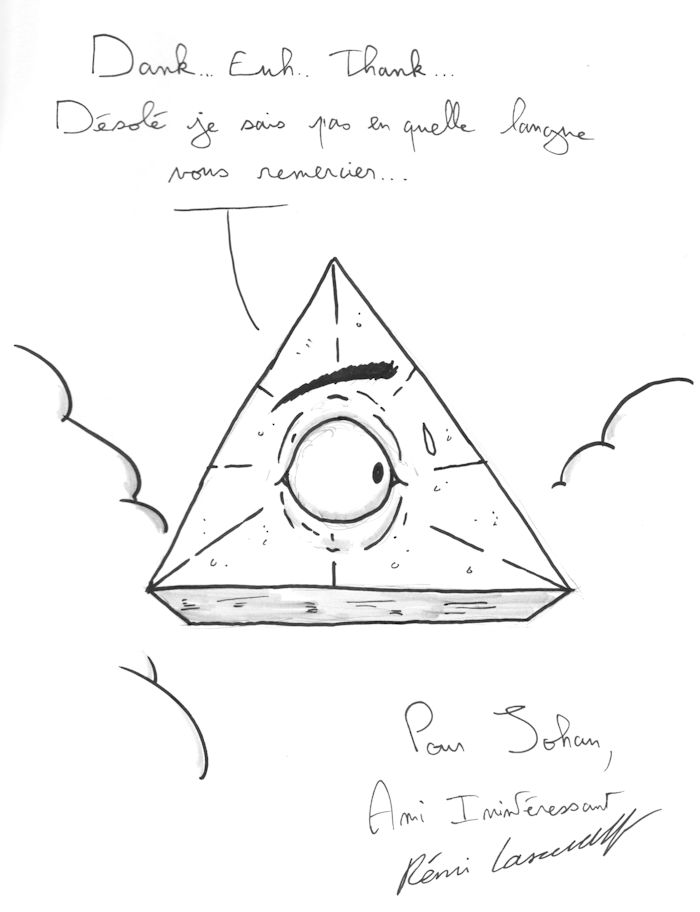 Dank... Euh.. Thank...
Désolé je sais pas en quelle langue
vous remercier...
Pour Johan,
Ami Inintéressant
Rémi